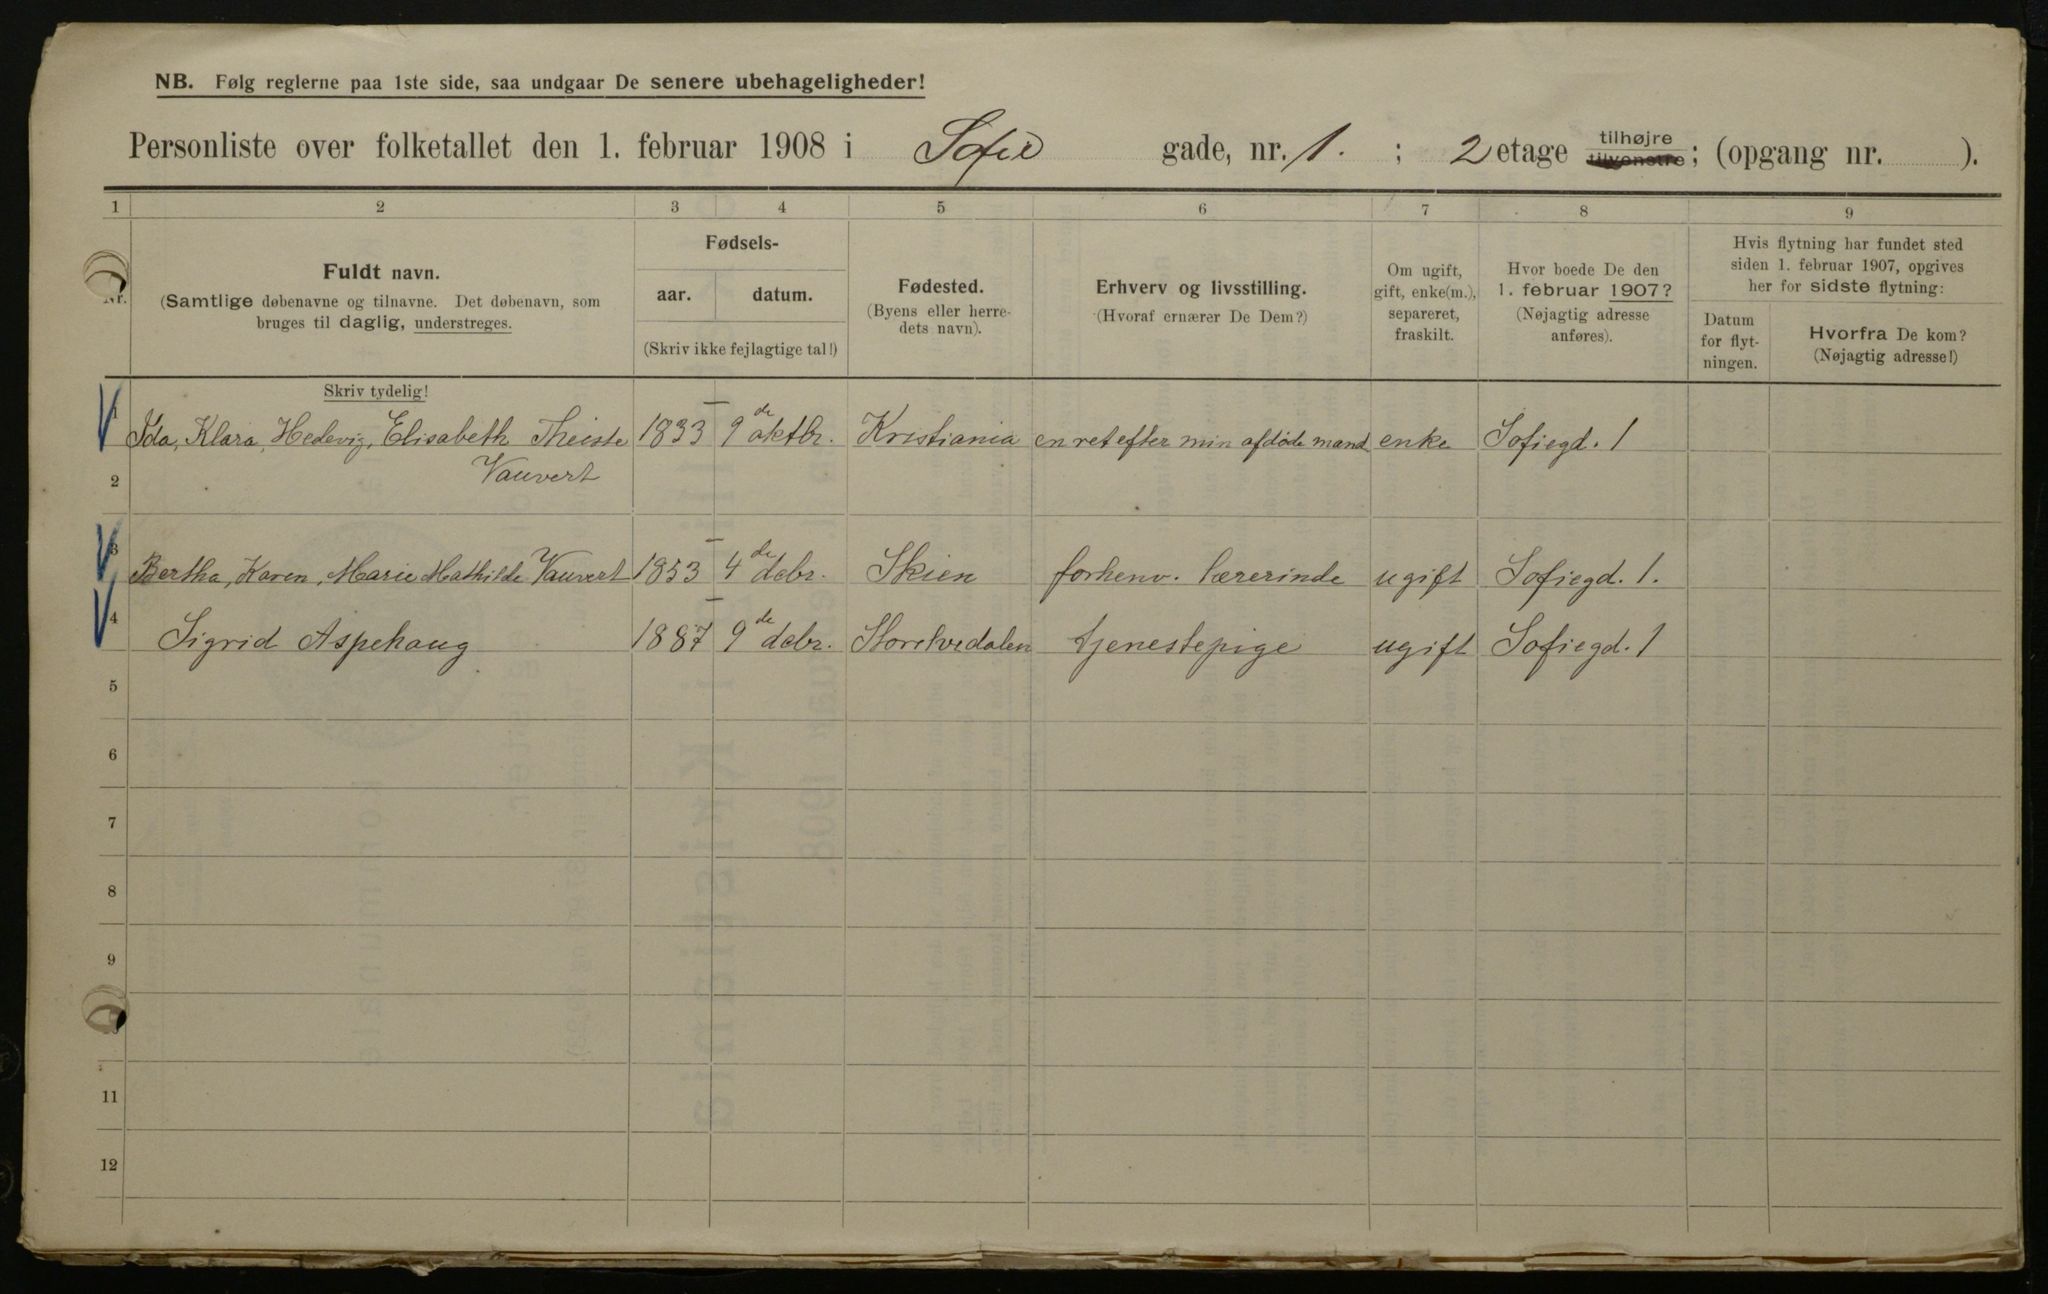 NB. Følg reglerne paa 1ste side, saa undgaar De senere ubehageligheder!
Personliste over folketallet den 1. februar 1908 i Sofie gade, nr. 1. ; 2 etage tilhøjre tilvenstre; (opgang nr. ).
1 2 3 4 5 6 7 8 9
Nr.
Fuldt navn.
(Samtlige døbenavne og tilnavne. Det døbenavn, som
bruges til daglig, understreges.
Fødsels-
aar. datum.
(Skriv ikke fejlagtige tal!)
Fødested.
(Byens eller herre-
dets navn).
Erhverv og livsstilling.
(Hvoraf ernærer De Dem?)
Om ugift,
gift, enke(m.),
separeret,
fraskilt.
Hvor boede De den
1. februar 1907?
(Nøjagtig adresse
anføres).
Hvis flytning har fundet sted
siden 1. februar 1907, opgives
her for sidste flytning:
Datum
for flyt-
ningen.
Hvorfra De kom?
(Nøjagtig adresse!)
Skriv tydelig!
1 Ida, Klara, Hedevig, Elisabeth Theiste 1833 9de oktbr. Kristiania en ret efter min afdøde mand enke Sofiegd. 1
2 Vauvert
3 Bertha, Karen, Marie Mathilde Vauvert 1853 4de debr. Skien forhenv. lærerinde ugift Sofiegd. 1.
4 Sigrid Aspehaug 1887 9de debr. Storelvedalen tjenestepige ugift Sofiegd. 1
5
6
7
8
9
11
12